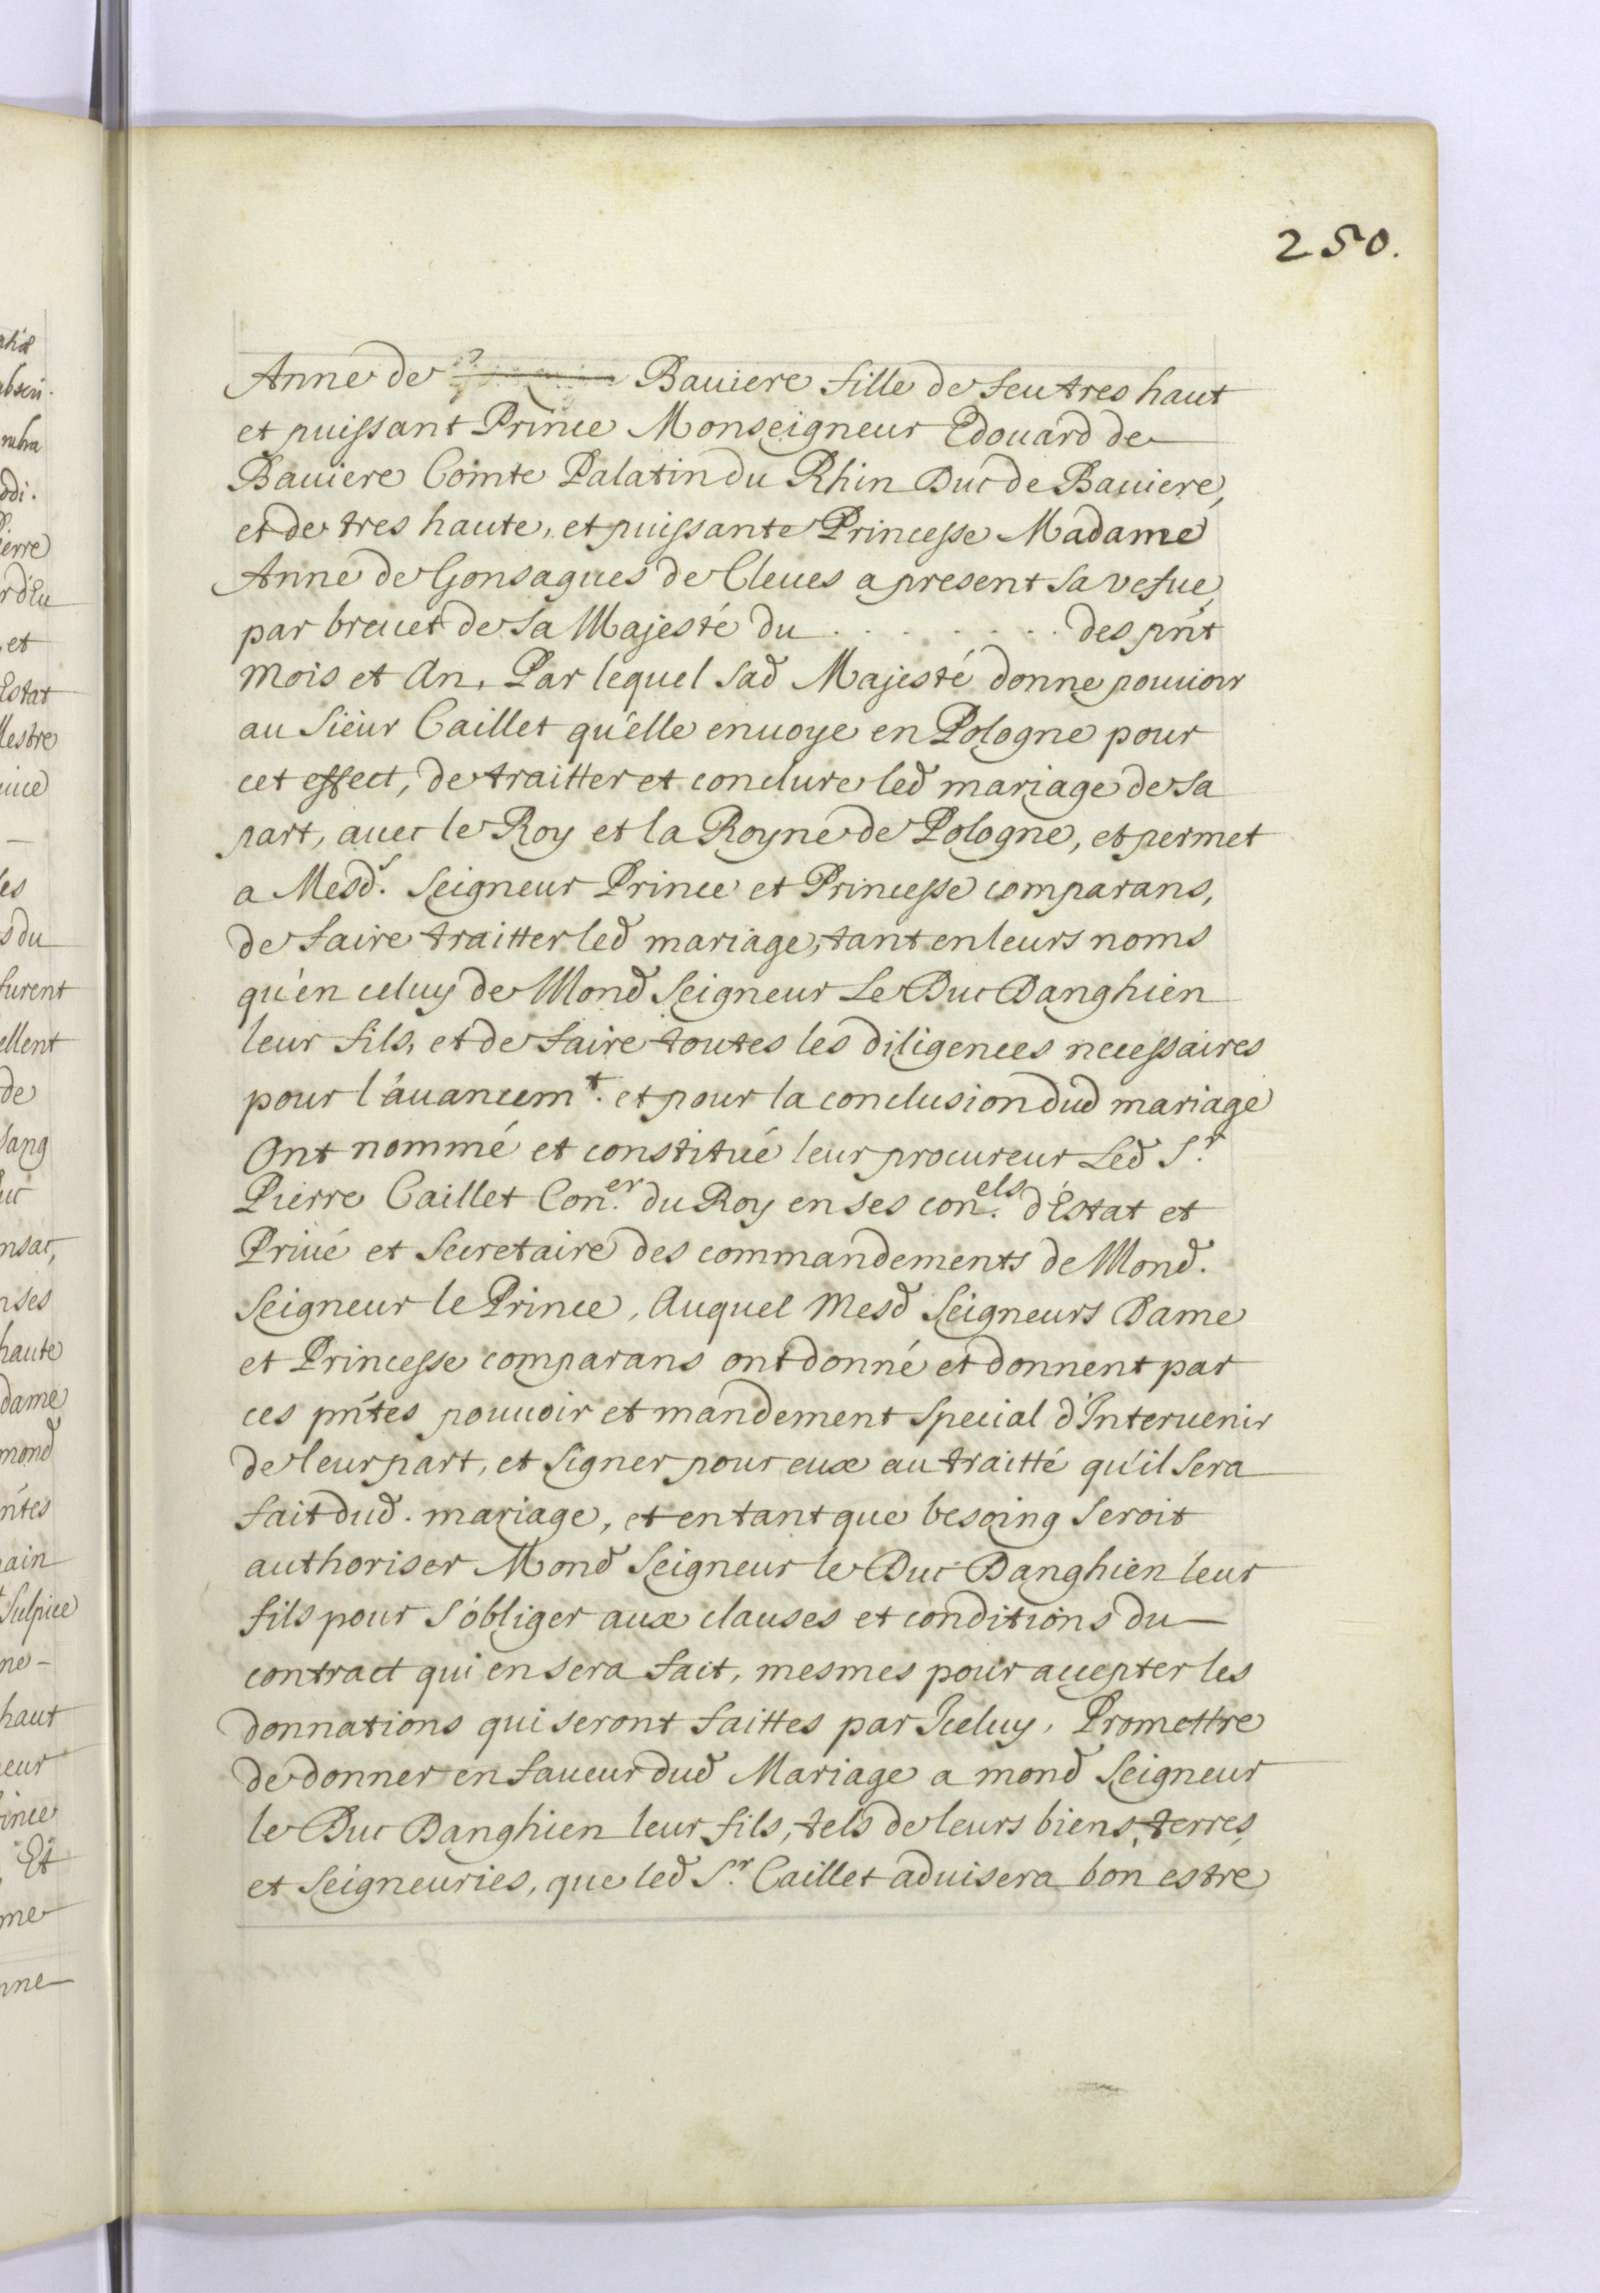 250.
Anne de Bauiere fille de feu tres haut
et puissant Prince Monseigneur Edouard de
Bauiere Comte Palatin du Rhin Duc de Bauiere,
et de tres haute, et puissante Princesse Madame
Anne de Gonsagues de Cleues a present sa vefue,
par breuet de Sa Majesté du . . . . . . . . des pñt
mois et An, Par lequel sad Majesté donne pouuoir
au Sieur Caillet qu'elle enuoye en Pologne pour
cet effect, de traitter et conclure led mariage de sa
part, auec le Roy et la Royne de Pologne, et permet
a Mesd.s Seigneur Prince et Princesse comparans,
de faire traitter led mariage, tant en leurs noms
qu'en celuy de Mond Seigneur Le Duc Danghien
leur fils, et de faire toutes les diligences necessaires
pour l'auancem.t et pour la conclusion dud mariage
Ont nommé et constitué leur procureur Led S.r
Pierre Caillet Con.er du Roy en ses con.els d'Estat et
Priué et Secretaire des commandements de Mond.
Seigneur le Prince, Auquel Mesd Seigneurs Dame
et Princesse comparans ont donné et donnent par
ces pñtes pouuoir et mandement special d'Interuenir
de leur part, et signer pour eux au traitté qu'il sera
fait dud. mariage, et en tant que besoing seroit
authoriser Mond Seigneur le Duc Danghien leur
fils pour s'obliger aux clauses et conditions du
contract qui en sera fait, mesmes pour accepter les
donnations qui seront faittes par Iceluy, Promettre
de donner en faueur dud Mariage a mond Seigneur
le Duc Danghien leur fils, tels de leurs biens, terres,
et Seigneuries, que led S.r Caillet aduisera bon estre